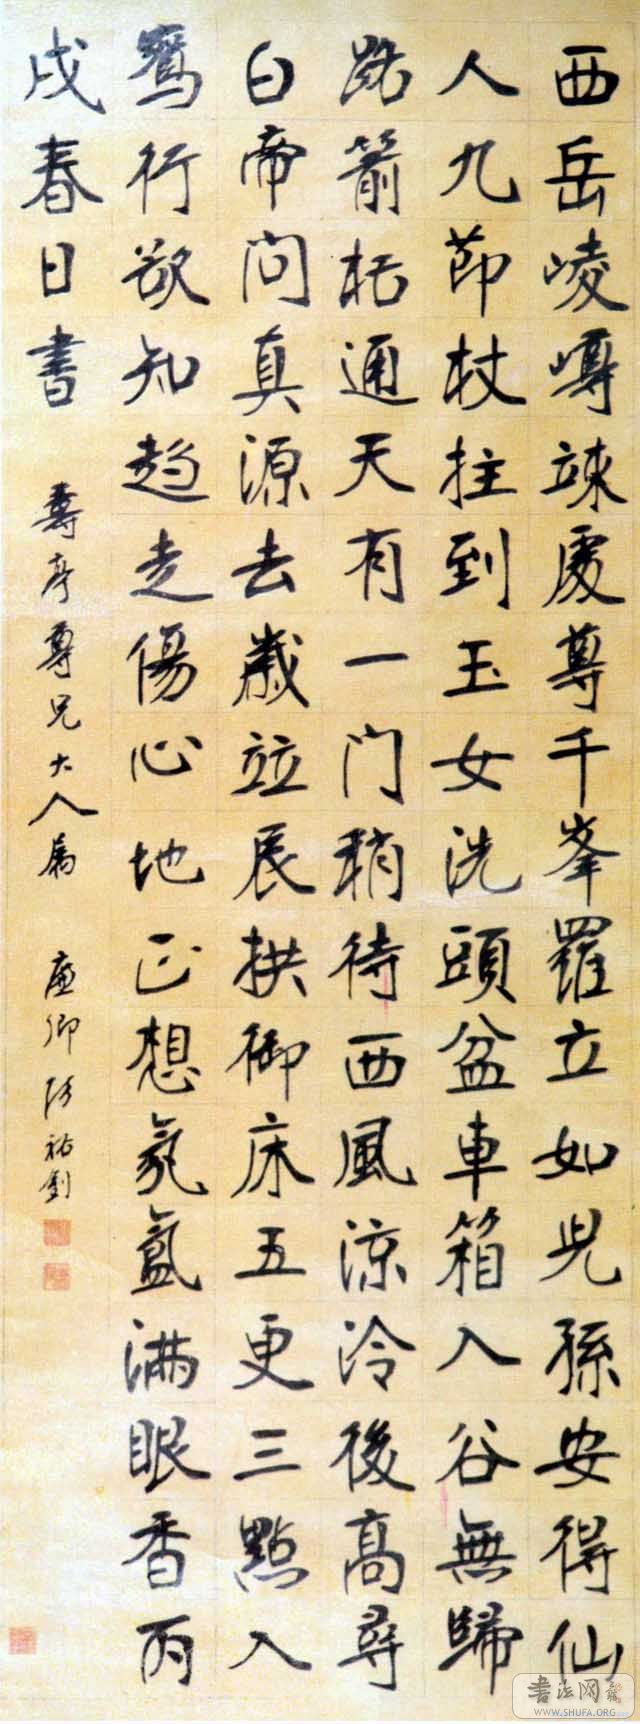 西岳崚嶒竦處尊千峯羅立如兒孫安得仙
人九節杖拄到玉女洗頭盆車箱入谷無歸
路箭栝通天有一門稍待西風涼冷後高尋
白帝問真源去歲茲辰拱御床五更三點入
鵷行欲知趨走傷心地正想氤氳滿眼香丙
戌春日書
壽亭尊兄大人屬 廉卿張裕釗
書法网
WWW.SHUFA.ORG